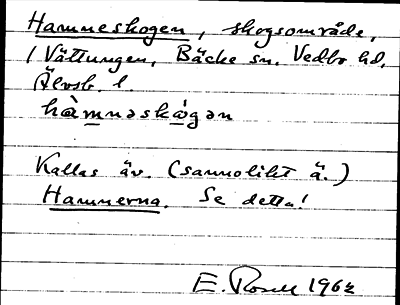 Hamneskogen, skogsområde,
i Vättungen, Bäcke sn. Vedbo hd,
Älvsb. l.
hàmnəskógən
Kallas äv. (sannolikt ä.)
Hamnerna. Se detta!
E. Rosell 1962